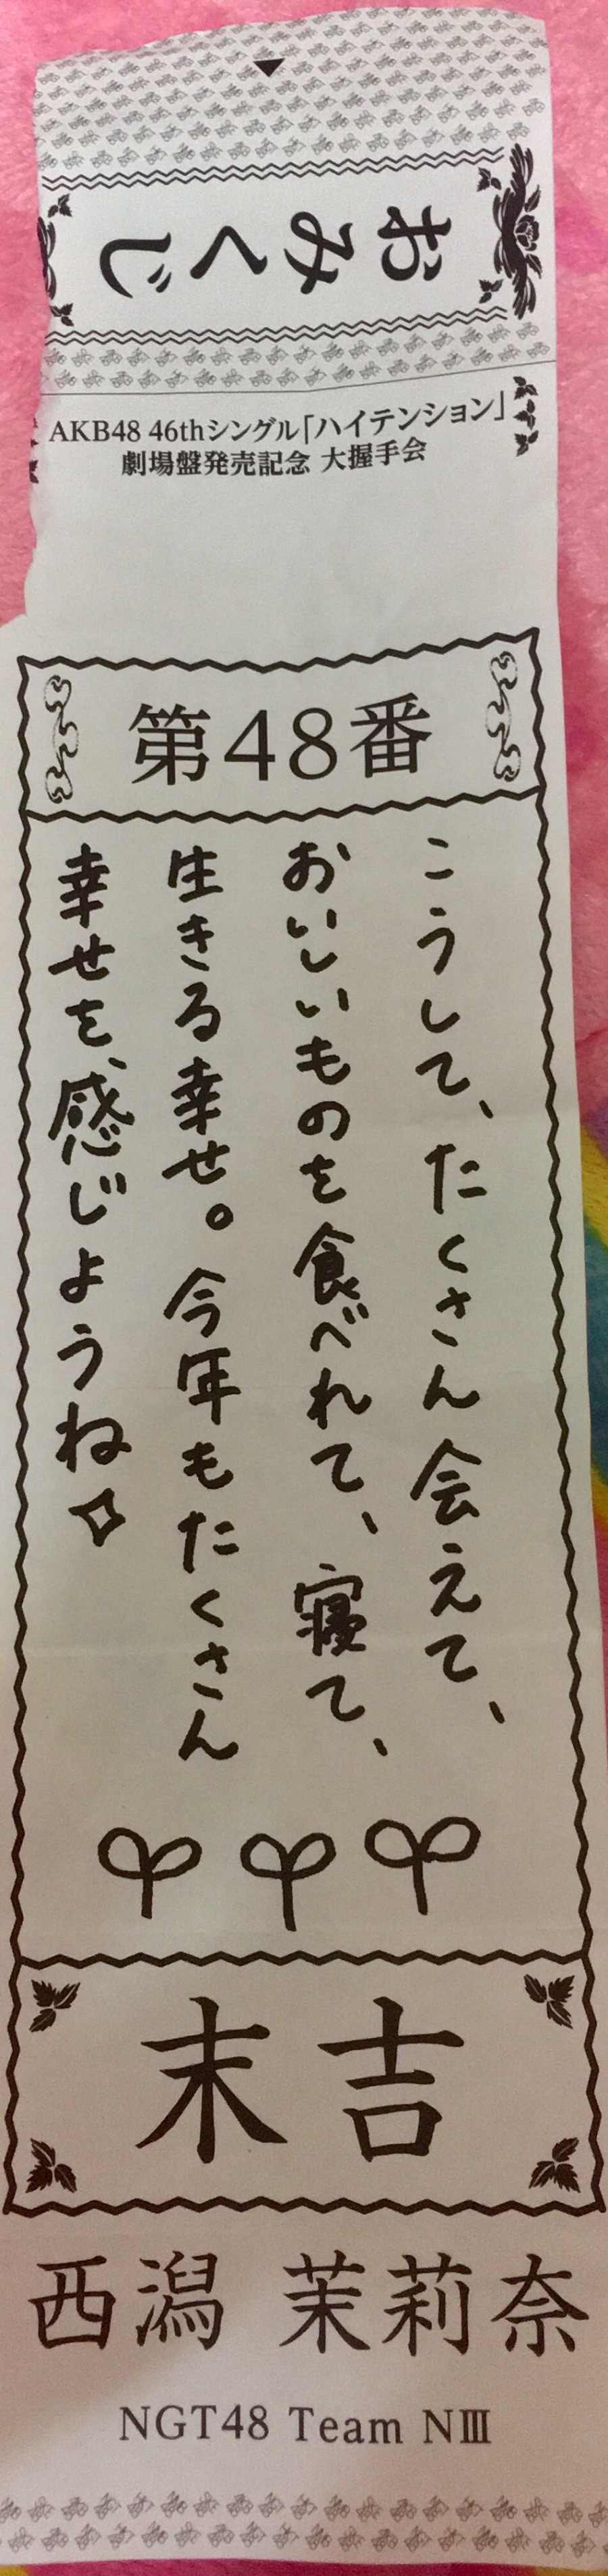 おみくじ
AKB48 46thシングル「ハイテンション」
劇場盤発売記念 大握手会
第48番
こうして、たくさん会えて、
おいしいものを食べれて、寝て、
生きる幸せ。今年もたくさん
幸せを、感じようね
末吉
西潟 茉莉奈
NGT48 Team NⅢ